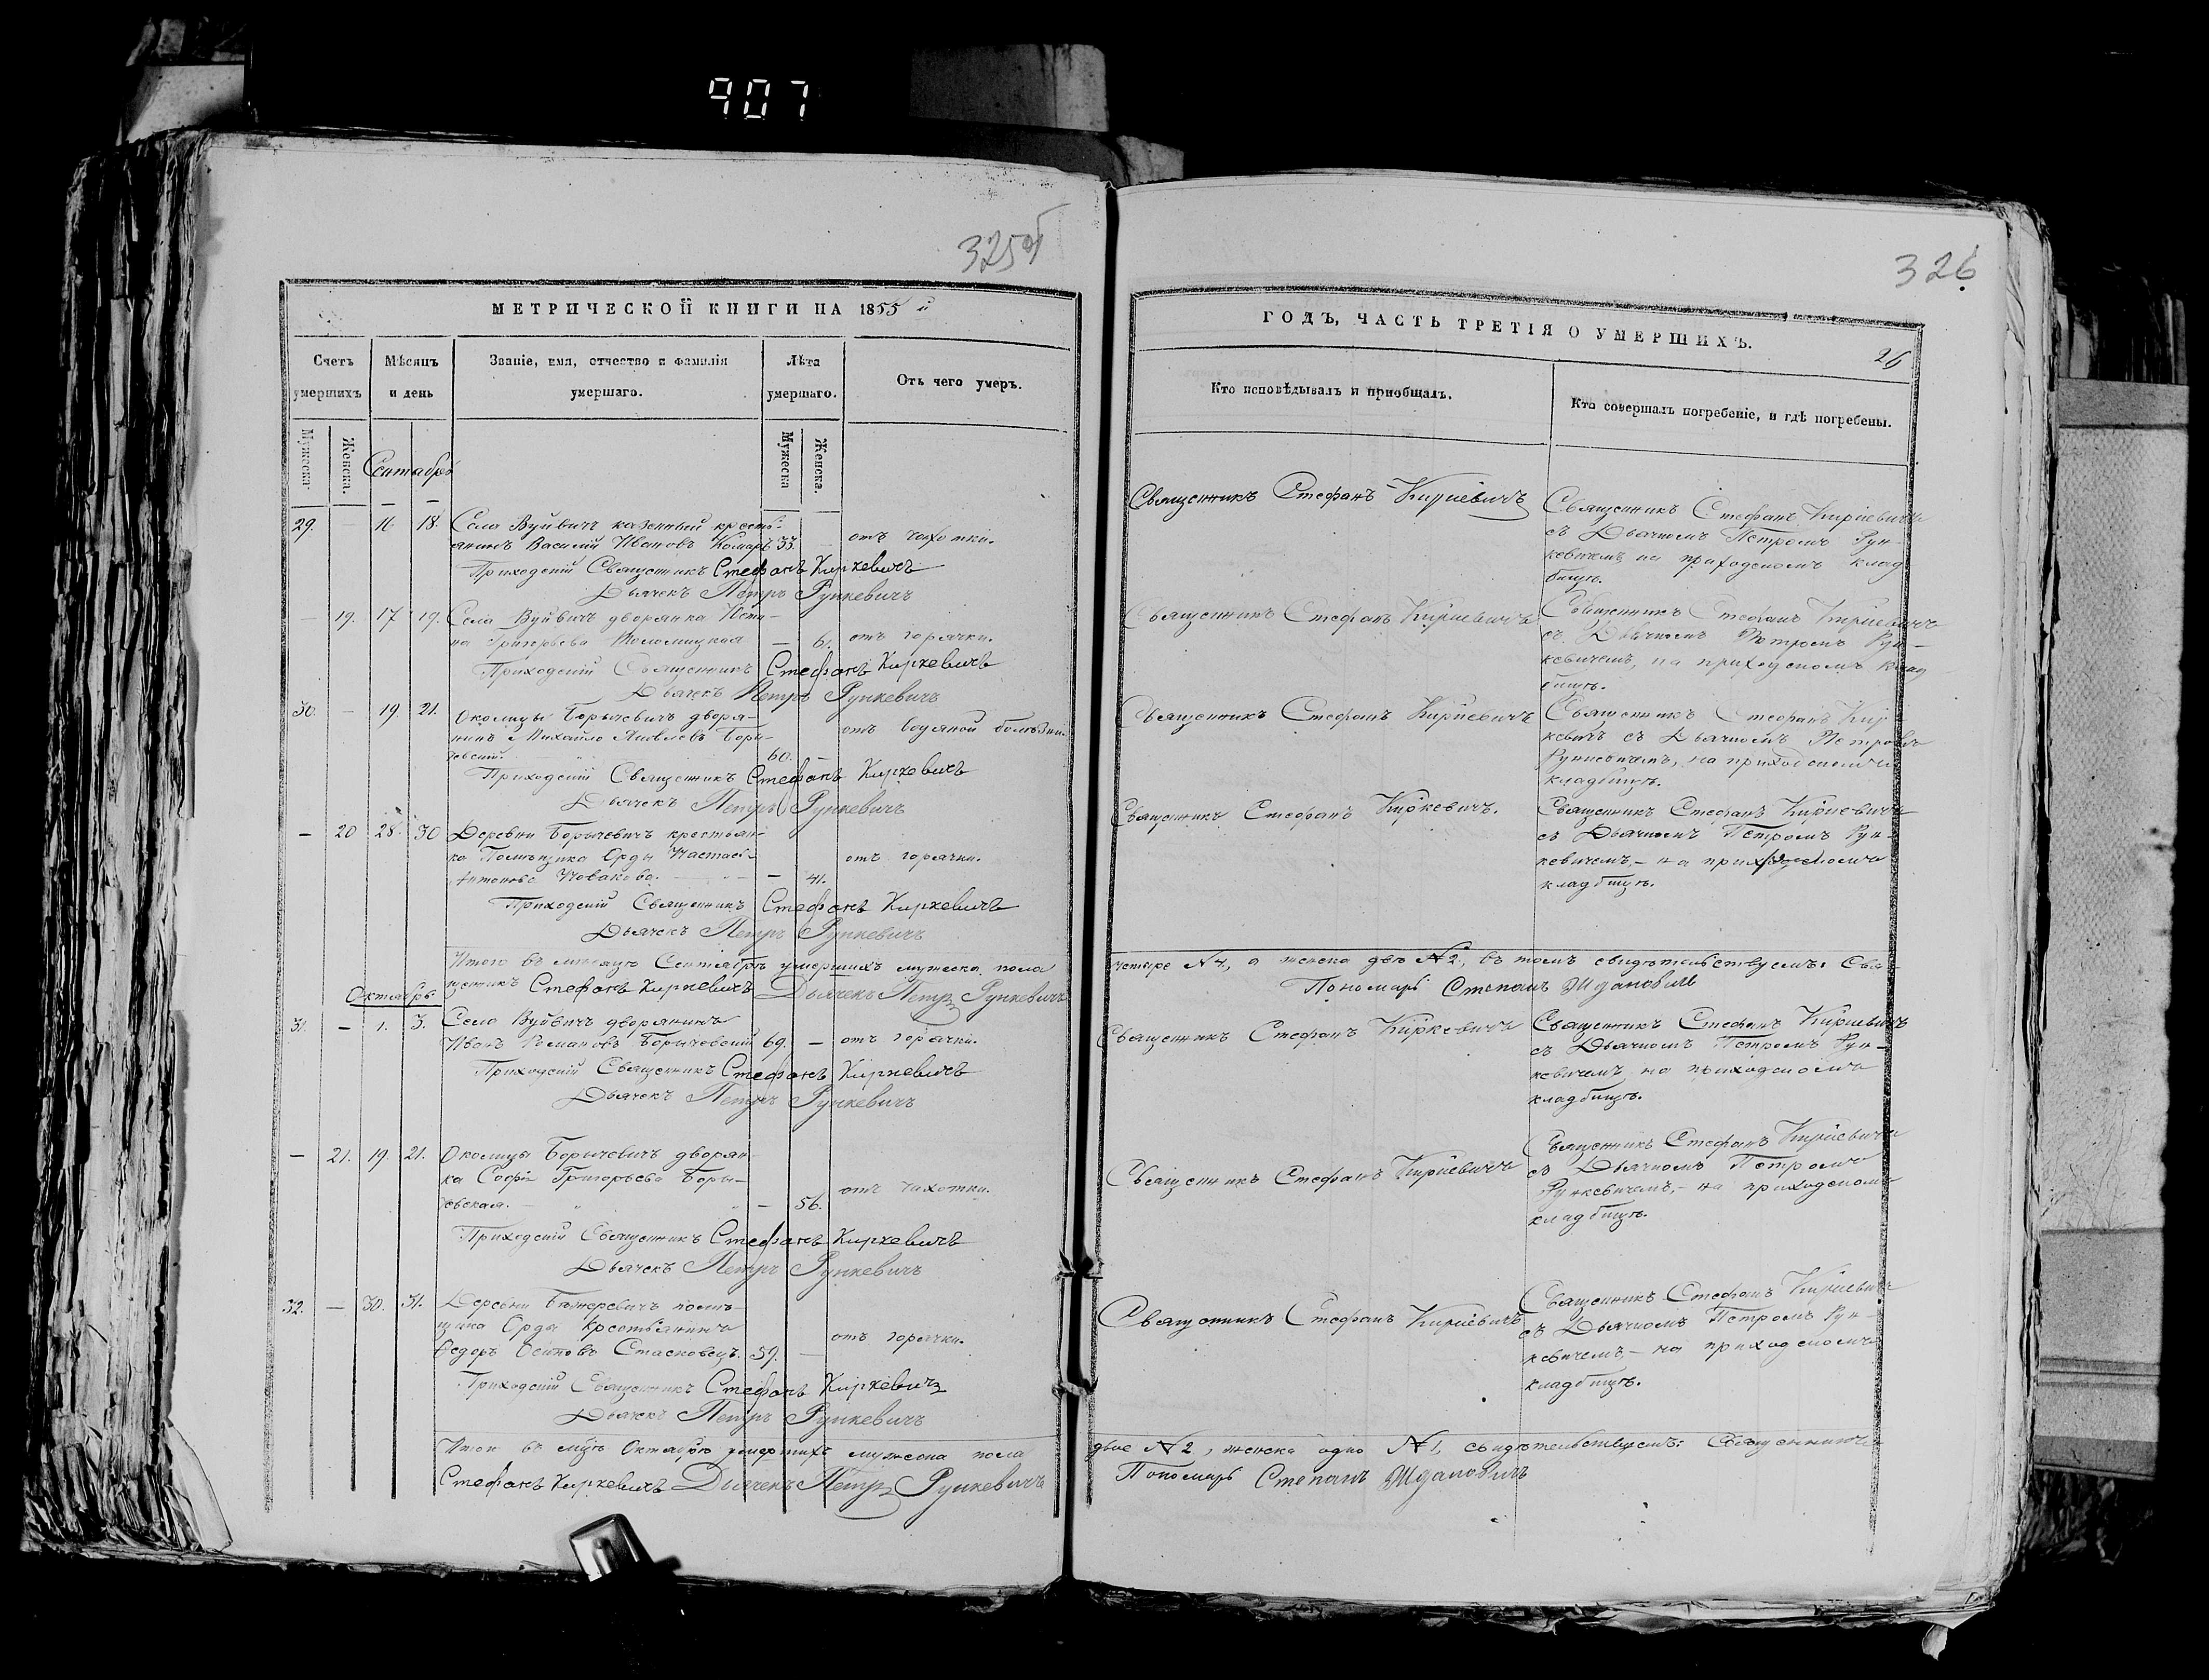 907
325об
МЕТРИЧЕСКОЙ КНИГИ НА 1855 й
Счетъ умершихъ
Мѣсяцъ и день
Званіе, имя, отчество и фамилія умершаго.
Лѣта умершаго.
Отъ чего умеръ.
Мужеска.
Женска.
Мужеска
Женска.
Сентябрь
29. — 16. 18. Села Вуйвичъ казенный кресть-
янинъ Василій Ивановъ Комаръ 33. — отъ чахотки.
Приходскій Священникъ Стефанъ Киркевичъ
Дьячекъ Петръ Рункевичъ
— 19. 17 19. Села Вуйвичъ дворянка
на Григорьева — 61. отъ горячки.
Приходскій Священникъ Стефанъ Киркевичъ
Дьячекъ Петръ Рункевичъ
30. — 19. 21. Околицы Борычевичъ дворя-
нинъ Михайло Яковлевъ Бори- отъ водяной болѣзни.
чевскій. 60. —
Приходскій Священникъ Стефанъ Киркевичъ
Дьячекъ Петръ Рункевичъ
— 20 28. 30 Деревни Борычевичъ крестьян-
ка Помѣщика Орды Настасія отъ горячки.
Антонова Новакова. — 41.
Приходскій Священникъ Стефанъ Киркевичъ
Дьячекъ Петръ Рункевичъ
Итого въ мѣсяцѣ Сентябрѣ умершихъ мужеска пола
щенникъ Стефанъ Киркевичъ Дьячекъ Петръ Рункевичъ
Октябрь
31. — 1. 3. Село Вуйвичъ дворянинъ
Иванъ Романовъ Борычевскій 69. — отъ горячки.
Приходскій Священникъ Стефанъ Киркевичъ
Дьячекъ Петръ Рункевичъ
— 21. 19. 21. Околицы Боричевичъ дворян-
ка Софія Григорьева Боры- отъ чахотки.
чевская. — 56.
Приходскій Священникъ Стефанъ Киркевичъ
Дьячекъ Петръ Рункевичъ
32. — 30. 31. Деревни помѣ-
щика Орды крестьянинъ отъ горячки.
Ѳедоръ Осиповъ Стасковецъ. 59. —
Приходскій Священникъ Стефанъ Киркевичъ
Дьячекъ Петръ Рункевичъ
Итого въ мцѣ Октябрѣ умершихъ мужеска пола
Стефанъ Киркевичъ Дьячекъ Петръ Рункевичъ
326
ГОДЪ, ЧАСТЬ ТРЕТІЯ О УМЕРШИХЪ.
26
Кто исповѣдывалъ и пріобщалъ.
Кто совершалъ погребеніе, и гдѣ погребены.
Священникъ Стефанъ Киркевичъ
Священникъ Стефанъ Киркевичъ
съ Дьячкомъ Петромъ Рун-
кевичемъ на приходскомъ клад
бищѣ.
Священникъ Стефанъ Киркевичъ
Священникъ Стефанъ Киркевичъ
съ Дьячкомъ Петромъ Рун-
кевичемъ, на приходскомъ клад
бищѣ.
Священникъ Стефанъ Киркевичъ
Священникъ Стефанъ Кир-
кевичъ съ Дьячкомъ Петромъ
Рункевичемъ, на приходскомъ
кладбищѣ.
Священникъ Стефанъ Киркевичъ.
Священникъ Стефанъ Киркевичъ
съ Дьячкомъ Петромъ Рун-
кевичемъ, — на приходскомъ
кладбищѣ.
четыре №4, а женска двѣ №2, въ томъ свидѣтельствуемъ: Свя-
Пономарь Степанъ Ждановичъ
Священникъ Стефанъ Киркевичъ
Священникъ Стефанъ Киркевичъ
съ Дьячкомъ Петромъ Рун-
кевичемъ на приходскомъ
кладбищѣ.
Священникъ Стефанъ Киркевичъ
Священникъ Стефанъ Киркевичъ
съ Дьячкомъ Петромъ
Рункевичемъ, — на приходскомъ
кладбищѣ.
Священникъ Стефанъ Киркевичъ
Священникъ Стефанъ Киркевичъ
съ Дьячкомъ Петромъ Рун-
кевичемъ — на приходскомъ
кладбищѣ.
двое №2, женска одно №1, свидѣтельствуемъ: Священникъ
Пономарь Степанъ Ждановичъ